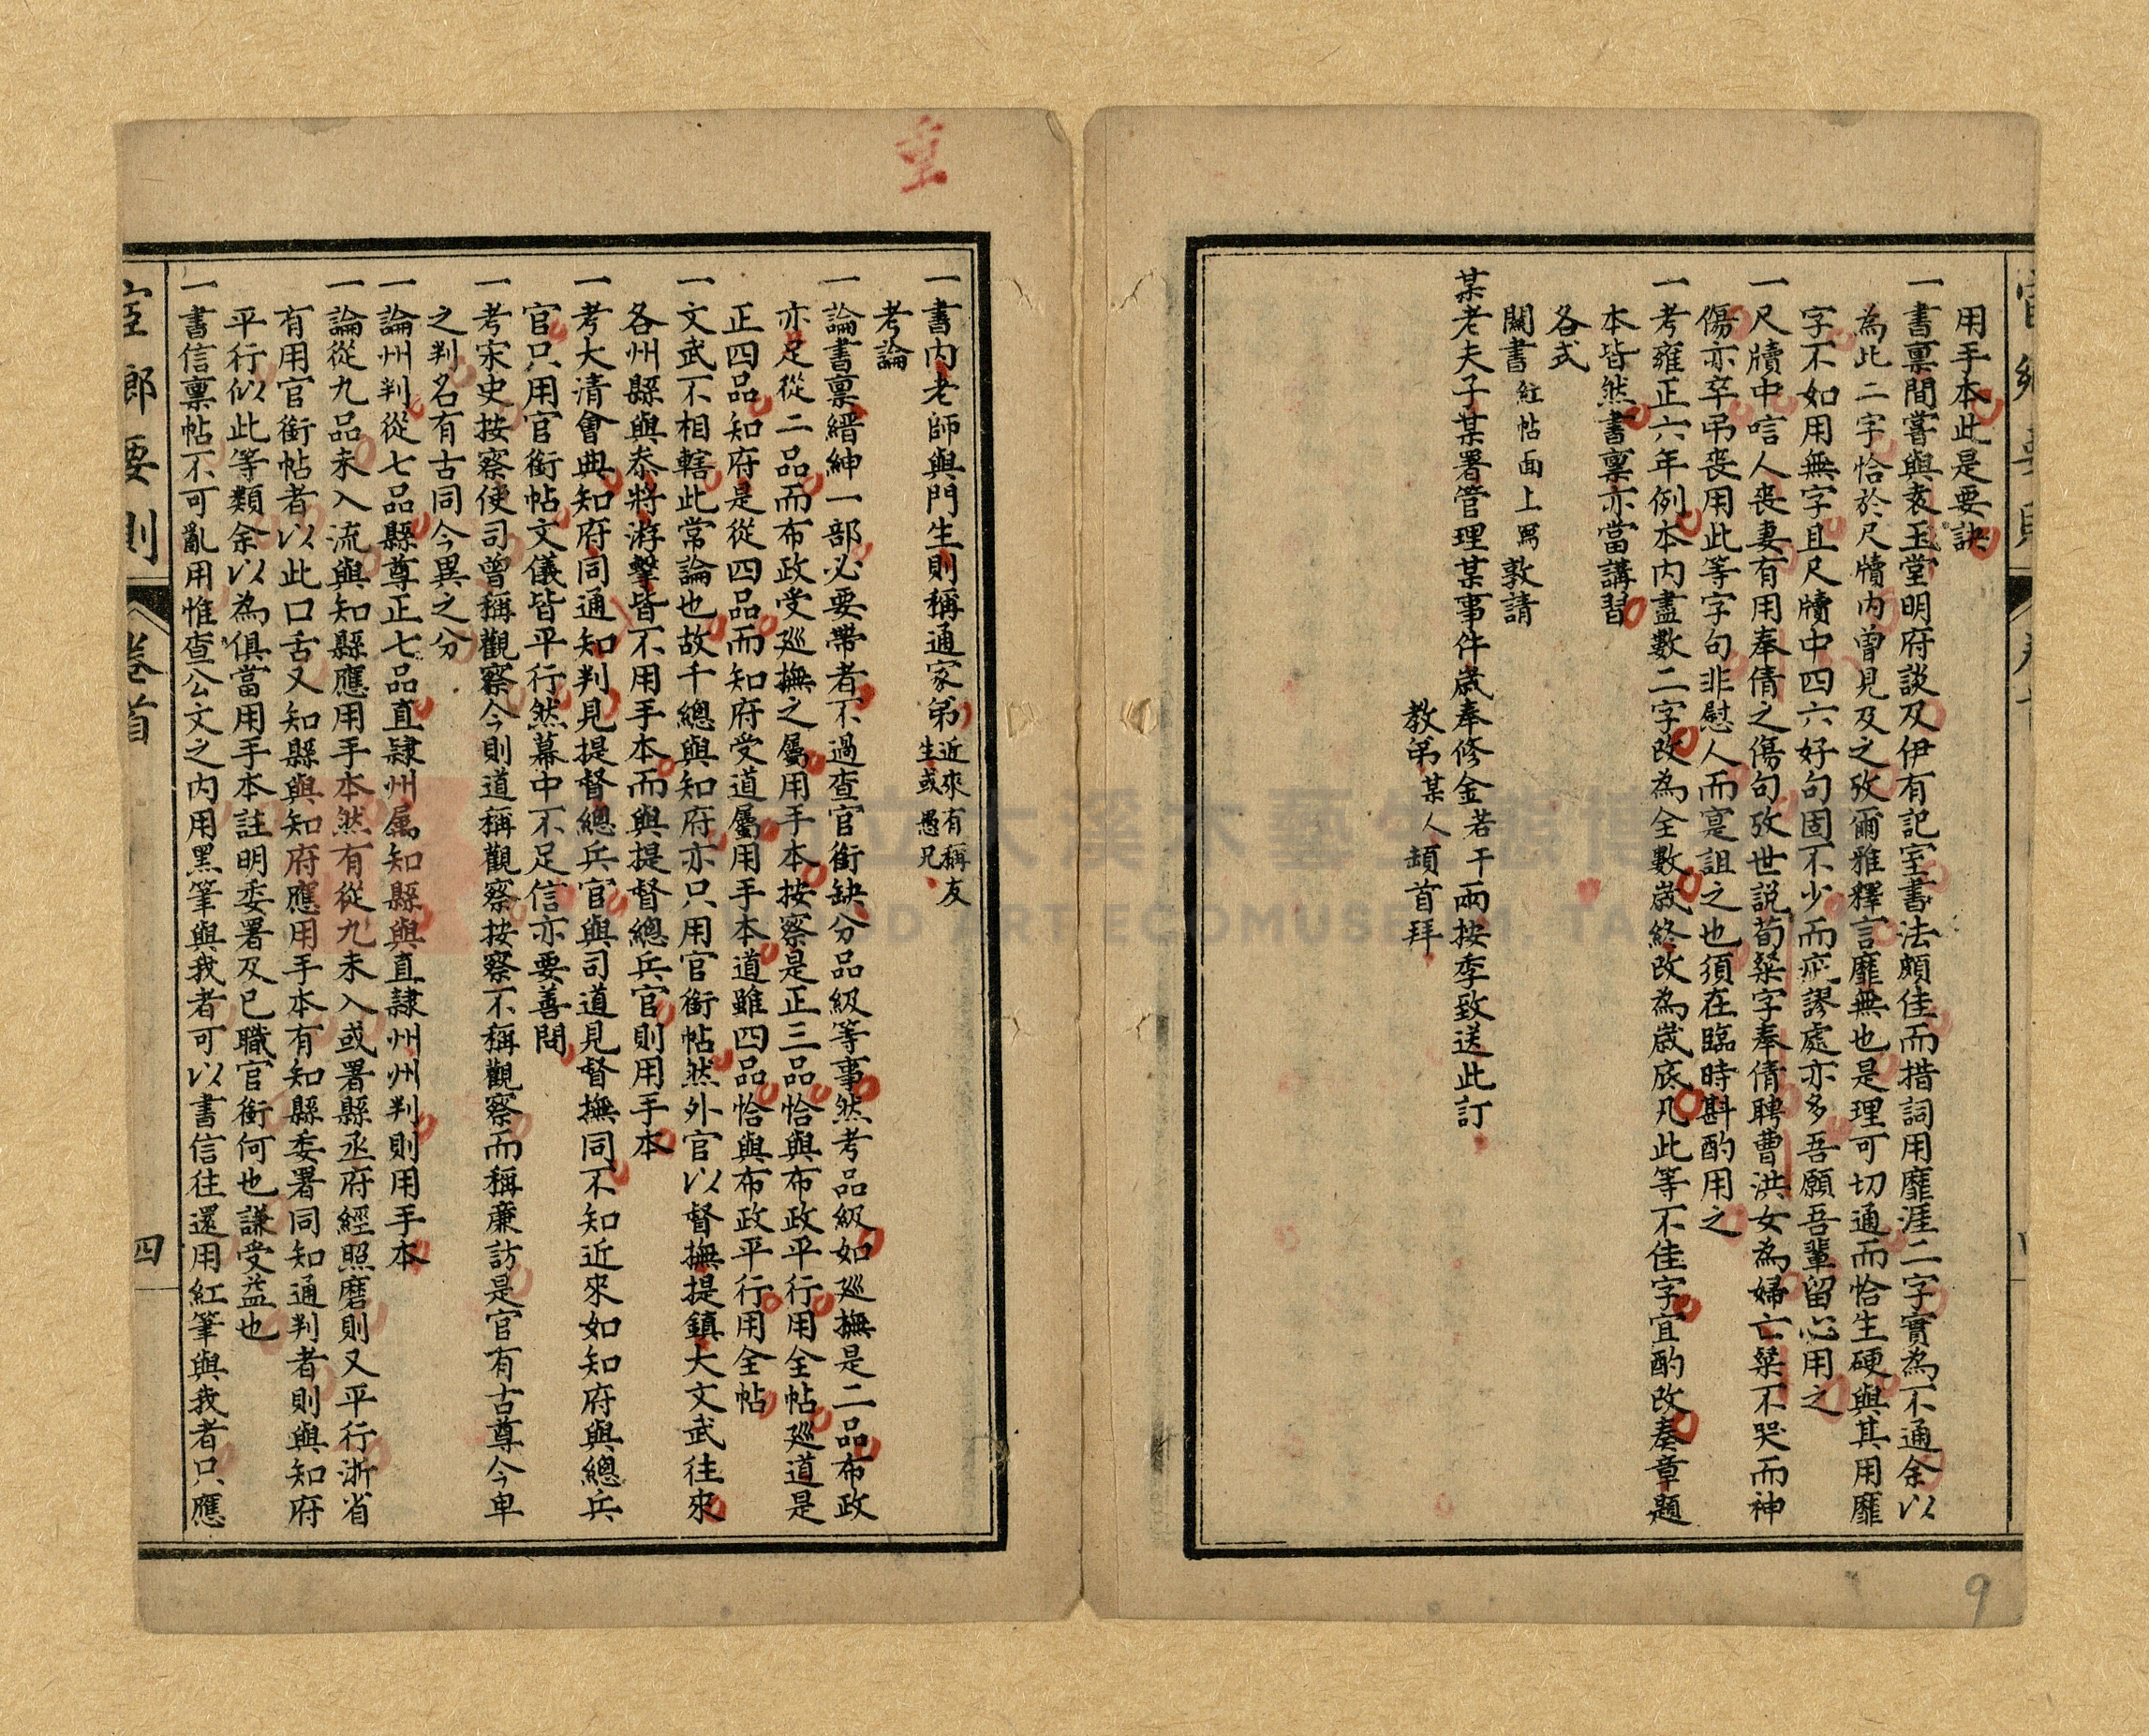 用手本此是要訣
一書稟間嘗與袁玉堂明府談及伊有記室書法頗佳而措詞用靡涯二字實為不通余以
為此二字恰於尺牘內曾見及之攷爾雅釋言靡無也是理可切通而恰生硬與其用靡
字不如用無字且尺牘中四六好句固不少而疵謬處亦多吾願吾輩留心用之
一尺牘中唁人喪妻有用奉倩之傷句攷世説荀粲字奉倩聘曹洪女為婦亡粲不哭而神
傷亦卒弔喪用此等字句非慰人而寔詛之也須在臨時斟酌用之
一考雍正六年例本內盡數二字改為全數歲終改為歲底凡此等不佳字宜酌改奏章題
本皆然書稟亦當講習
各式
關書 紅帖面上寫 敦請
某老夫子某署管理某事件歲奉修金若干兩按季致送此訂
教弟某人頓首拜
重
一書內老師與門生則稱通家弟近來有稱友
生或愚兄
考論
一論書稟縉紳一部必要帶者不過查官銜缺分品級等事然考品級如廵撫是二品布政
亦足從二品而布政受廵撫之屬用手本按察是正三品恰與布政平行用全帖廵道是
正四品知府是從四品而知府受道屬用手本道雖四品恰與布政平行用全帖
一文武不相轄此常論也故千總與知府亦只用官銜帖然外官以督撫提鎮大文武往來
各州縣與叅將游擊皆不用手本而與提督總兵官則用手本
一考大清會典知府同通知判見提督總兵官與司道見督撫同不知近來如知府與總兵
官只用官銜帖文儀皆平行然幕中不足信亦要善問
一考宋史按察使司曾稱觀察今則道稱觀察按察不稱觀察而稱廉訪是官有古尊今卑
之判名有古同今異之分
一論州判從七品縣尊正七品直隸州屬知縣與直隸州州判則用手本
一論從九品未入流與知縣應用手本然有從九未入或署縣丞府經照磨則又平行浙省
有用官銜帖者以此口舌又知縣與知府應用手本有知縣委署同知通判者則與知府
平行似此等類余以為俱當用手本註明委署及已職官銜何也謙受益也
一書信稟帖不可亂用惟查公文之內用黑筆與我者可以書信往還用紅筆與我者只應
宦鄉要則
卷首
四
9